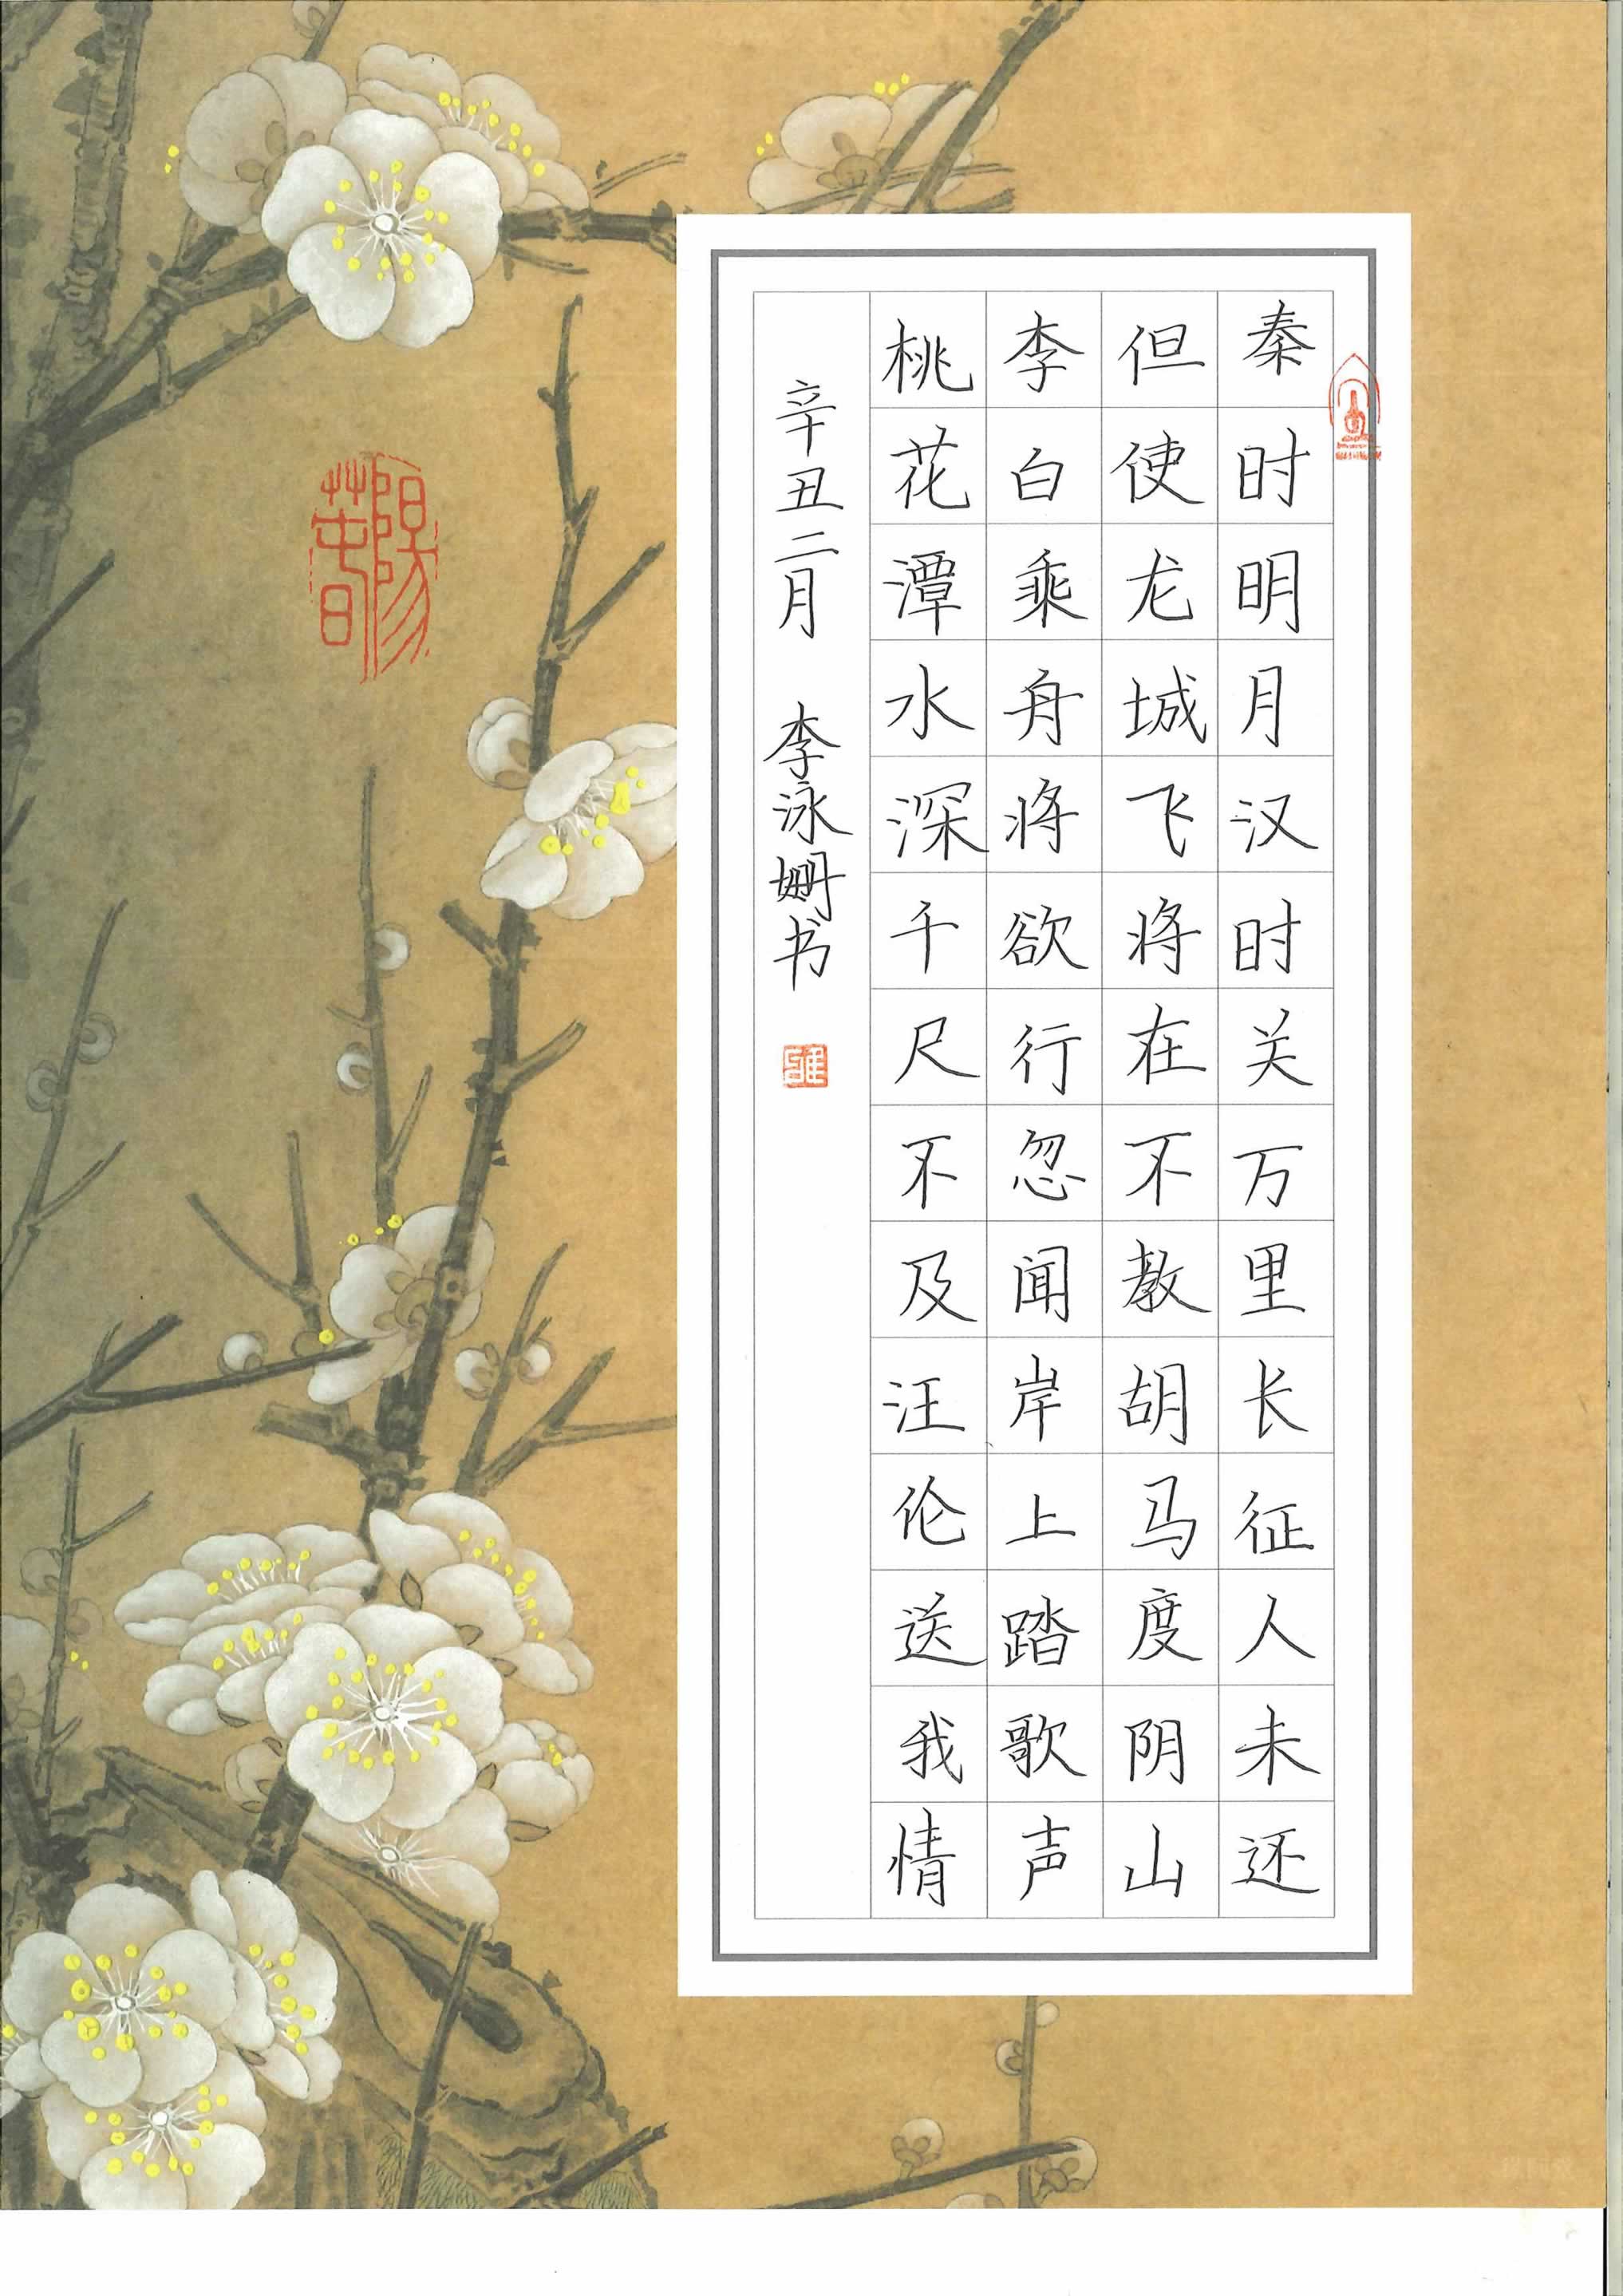 秦时明月汉时关万里长征人未还
但使龙城飞将在不教胡马度阴山
李白乘舟将欲行忽闻岸上踏歌声
桃花潭水深千尺不及汪伦送我情
辛丑二月 李泳姗书
陽春